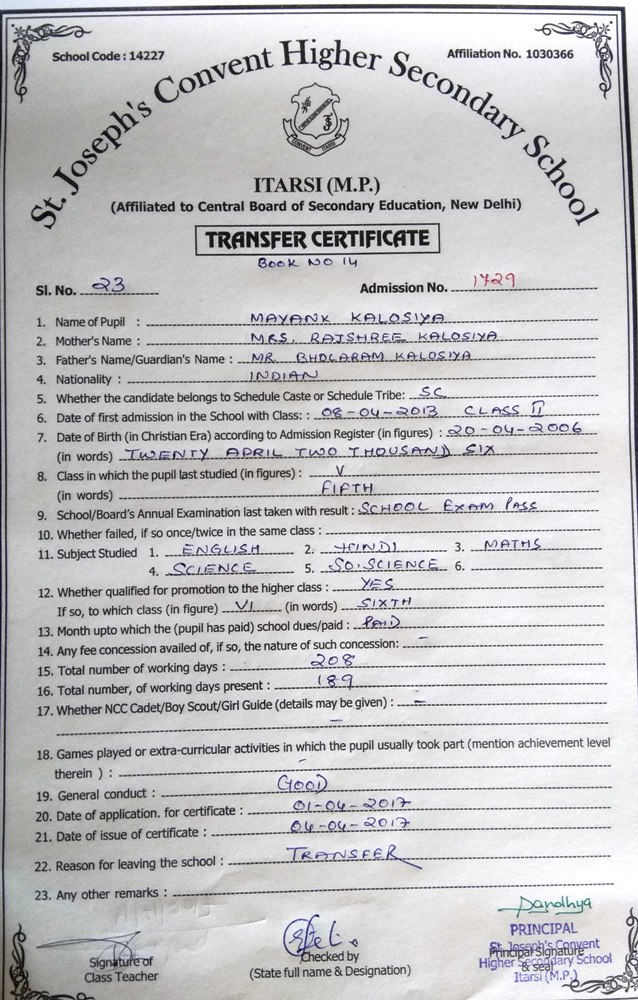 School Code : 14227
Affiliation No. 1030366
St. Joseph's Convent Higher Secondary School
CONVENT ITARSI
ITARSI (M.P.)
(Affiliated to Central Board of Secondary Education, New Delhi)
TRANSFER CERTIFICATE
BOOK NO 14
Sl. No. 23 Admission No. 1729
1. Name of Pupil : MAYANK KALOSIYA
2. Mother's Name : MRS. RAJSHREE KALOSIYA
3. Father's Name/Guardian's Name : MR. BHOLARAM KALOSIYA
4. Nationality : INDIAN
5. Whether the candidate belongs to Schedule Caste or Schedule Tribe: SC
6. Date of first admission in the School with Class: : 08-04-2013 CLASS II
7. Date of Birth (in Christian Era) according to Admission Register (in figures) : 20-04-2006
(in words) TWENTY APRIL TWO THOUSAND SIX
8. Class in which the pupil last studied (in figures) : V
(in words) FIFTH
9. School/Board's Annual Examination last taken with result : SCHOOL EXAM PASS
10. Whether failed, if so once/twice in the same class :
11. Subject Studied 1. ENGLISH 2. HINDI 3. MATHS
4. SCIENCE 5. SO. SCIENCE 6.
12. Whether qualified for promotion to the higher class : YES
If so, to which class (in figure) VI (in words) SIXTH
13. Month upto which the (pupil has paid) school dues/paid : PAID
14. Any fee concession availed of, if so, the nature of such concession: –
15. Total number of working days : 208
16. Total number, of working days present : 189
17. Whether NCC Cadet/Boy Scout/Girl Guide (details may be given) : –
–
18. Games played or extra-curricular activities in which the pupil usually took part (mention achievement level
therein ) : –
19. General conduct : GOOD
20. Date of application. for certificate : 01-04-2017
21. Date of issue of certificate : 04-04-2017
22. Reason for leaving the school : TRANSFER
23. Any other remarks :
PRINCIPAL
St. Joseph's Convent
Higher Secondary School
Itarsi (M.P.)
Signature of
Class Teacher
Checked by
(State full name & Designation)
Principal Signature
& seal